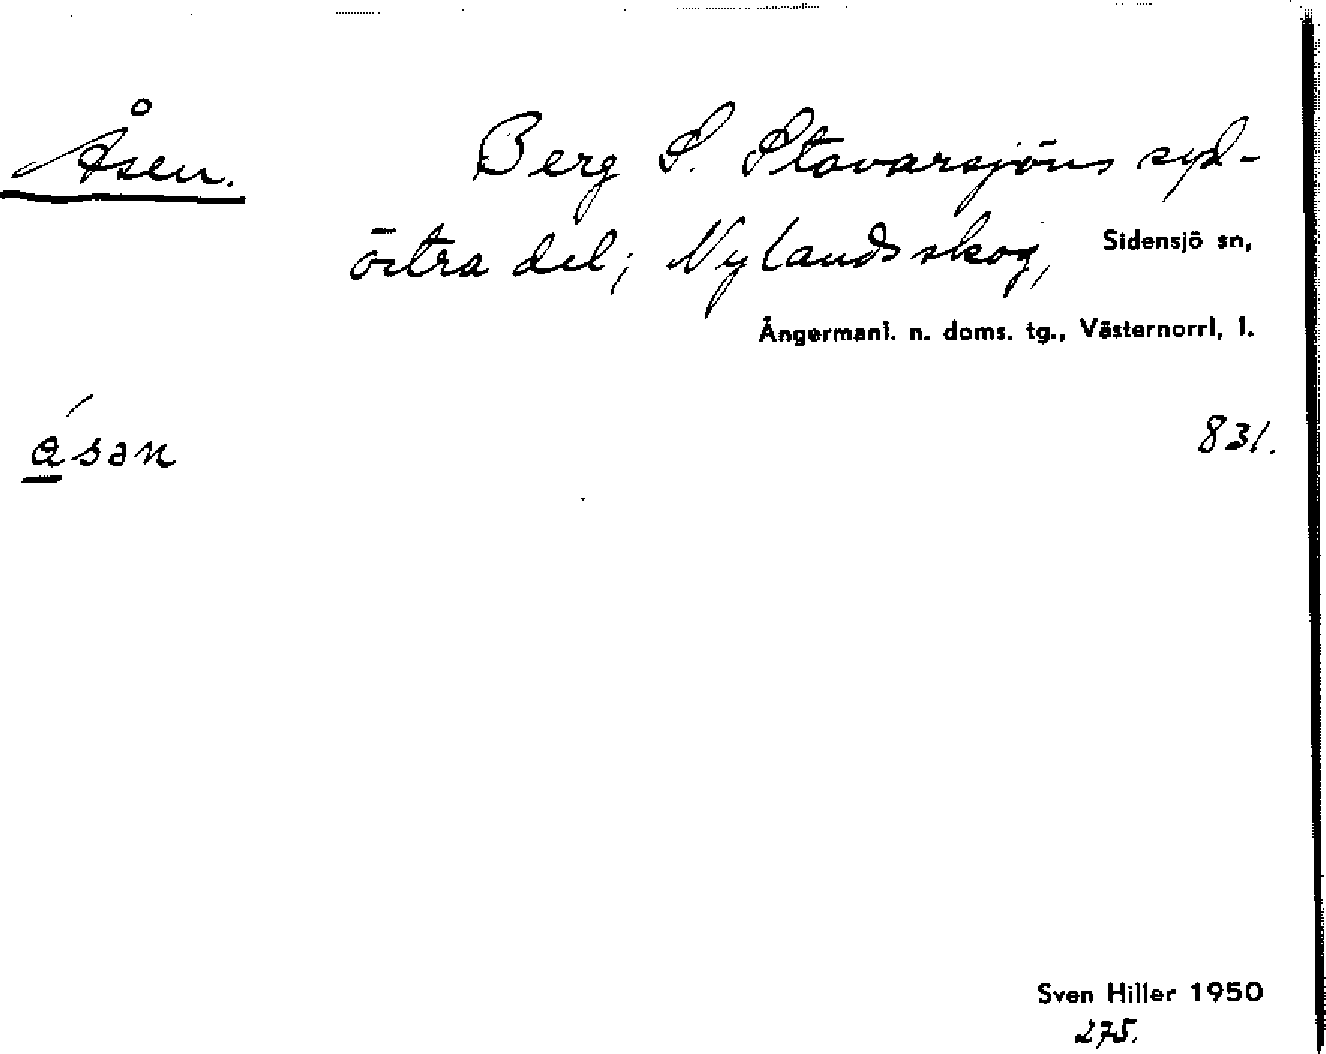 Åsen. Berg S. Stavarsjöns syd-
östra del; Nylandsskog, Sidensjö sn,
Ångermanl. n. doms. tg., Västernorrl. l.
åsən 831.
Sven Hiller 1950
275.